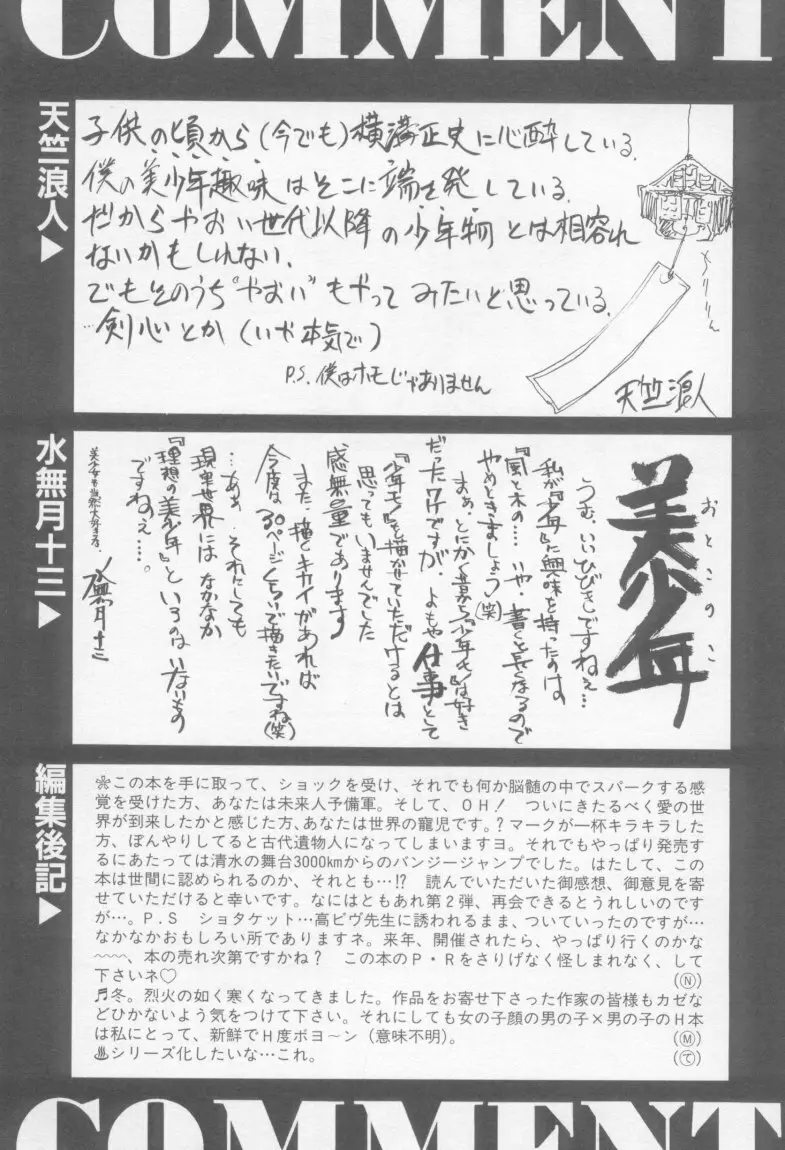 COMMENT
天竺浪人▶
子供の頃から(今でも)横溝正史に心酔している.
僕の美少年趣味はそこに端を発している.
だからやおい世代以降の少年物とは相容れ
ないかもしれない.
でもそのうち“やおい”もやってみたいと思っている.
…剣心とか(いや本気で)
P.S. 僕はホモじゃありません
ちりりん
天竺浪人
水無月十三▶
美少年
おとこのこ
うむ、いいひびきですねぇ…
私が『少年』に興味を持ったのは
『風と木の…』いや、書くと長くなるので
やめときましょう(笑)
まぁ、とにかく昔から『少年モノ』は好き
だったワケですが、よもや仕事として
『少年モノ』を描かせていただけるとは
思ってもいませんでした
感無量であります
また、描くキカイがあれば
今度は30ページくらいで描きたいですね(笑)
…ああ、それにしても
現実世界にはなかなか
『理想の美少年』というのはいないもの
ですねぇ……。
美少女も当然大好きさ。
水無月十三
編集後記▶
❀この本を手に取って、ショックを受け、それでも何か脳髄の中でスパークする感
覚を受けた方、あなたは未来人予備軍。そして、OH! ついにきたるべく愛の世
界が到来したかと感じた方、あなたは世界の寵児です。?マークが一杯キラキラした
方、ぼんやりしてると古代遺物人になってしまいますヨ。それでもやっぱり発売す
るにあたっては清水の舞台3000kmからのバンジージャンプでした。はたして、この
本は世間に認められるのか、それとも…!? 読んでいただいた御感想、御意見を寄
せていただけると幸いです。なにはともあれ第2弾、再会できるとうれしいのです
が…。P.S ショタケット…高ビヴ先生に誘われるまま、ついていったのですが…
なかなかおもしろい所でありますネ。来年、開催されたら、やっぱり行くのかな
~~~、本の売れ次第ですかね? この本のP・Rをさりげなく怪しまれなく、して
下さいネ♡ Ⓝ
♬冬。烈火の如く寒くなってきました。作品をお寄せ下さった作家の皆様もカゼな
どひかないよう気をつけて下さい。それにしても女の子顔の男の子×男の子のH本
は私にとって、新鮮でH度ボヨ〜ン(意味不明)。 Ⓜ
♨シリーズ化したいな…これ。 (て)
COMMENT